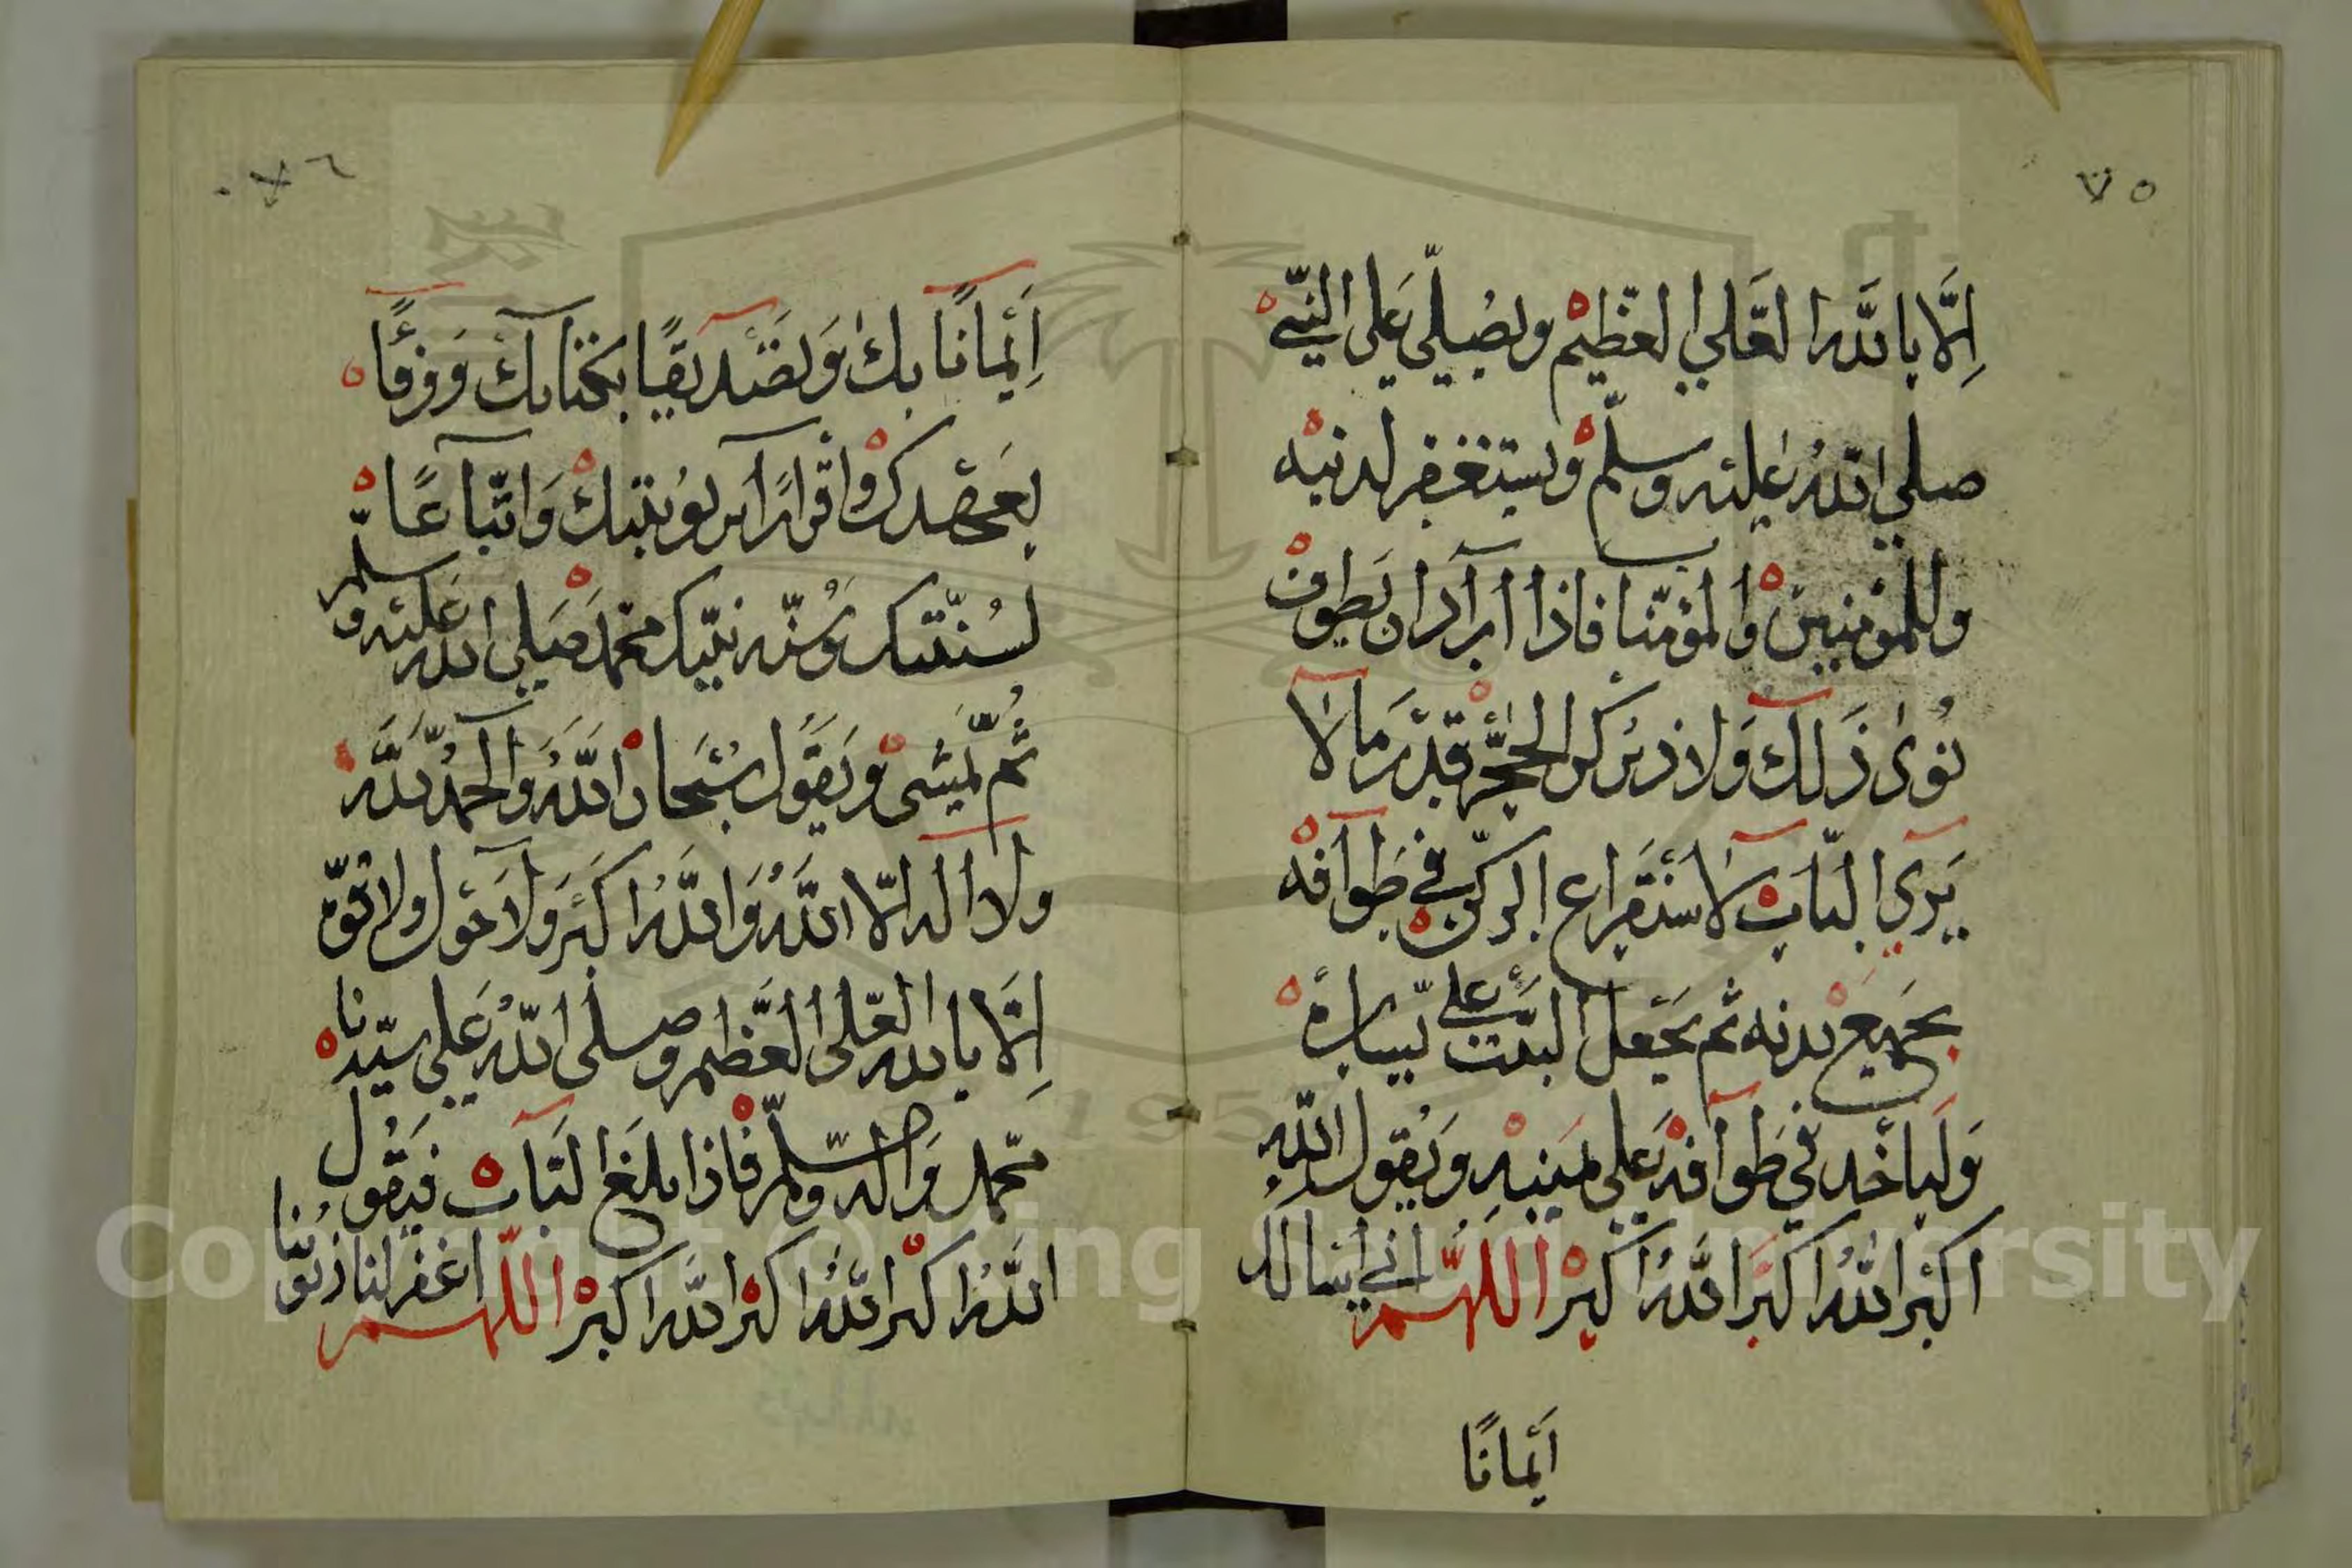 ٧٥
اِلَّا بِاللّٰه العَلي العظيم ويُصلّي عَلى النبّي
صلي اللهُ عليه وسلم ويستغفر لدنبه
وللمؤمنين والمؤمنا فاذا اراد ان يطوف
نوى ذَلك وَلا ذركن الحجر قدر ما لا
يَري البَاب لاستقراع الركن في طوافه
بجميع بدنه ثم يجعل البيت على يساره
وَلياخد في طوافه عَلى يمينه وَيقول الله
اكبر اللهُ اكبر اللهُ اكبر اللهم اني اسالك
اَيمانًا
٧٦
اِيمانًا بك وَتصديقًا بكتابك وَوفًا
بعهدك واقرارًا بربوبيتك وَاتباعًا
لسُنّتك وسُنّه نبيّك محمّد صَلى الله عَليه وسلم
ثُمّ يمشى وَيقول سُبحان اللهُ والحمدُ للّه
ولا اله الّا اللّه وَاللهُ اكبَر وَلا حَول ولا قوّة
اِلَّا بالله العَلى العَظيم وصلى اللهُ عَلى سيّدنا
محمّد وَاله وسلم فاذا بلغ البَاب فيَقول
اللهُ اكبر اللهُ اكبر الله اكبر اللهم اغفر لنا ذنوُبنا
Copyright © King Saud University
195